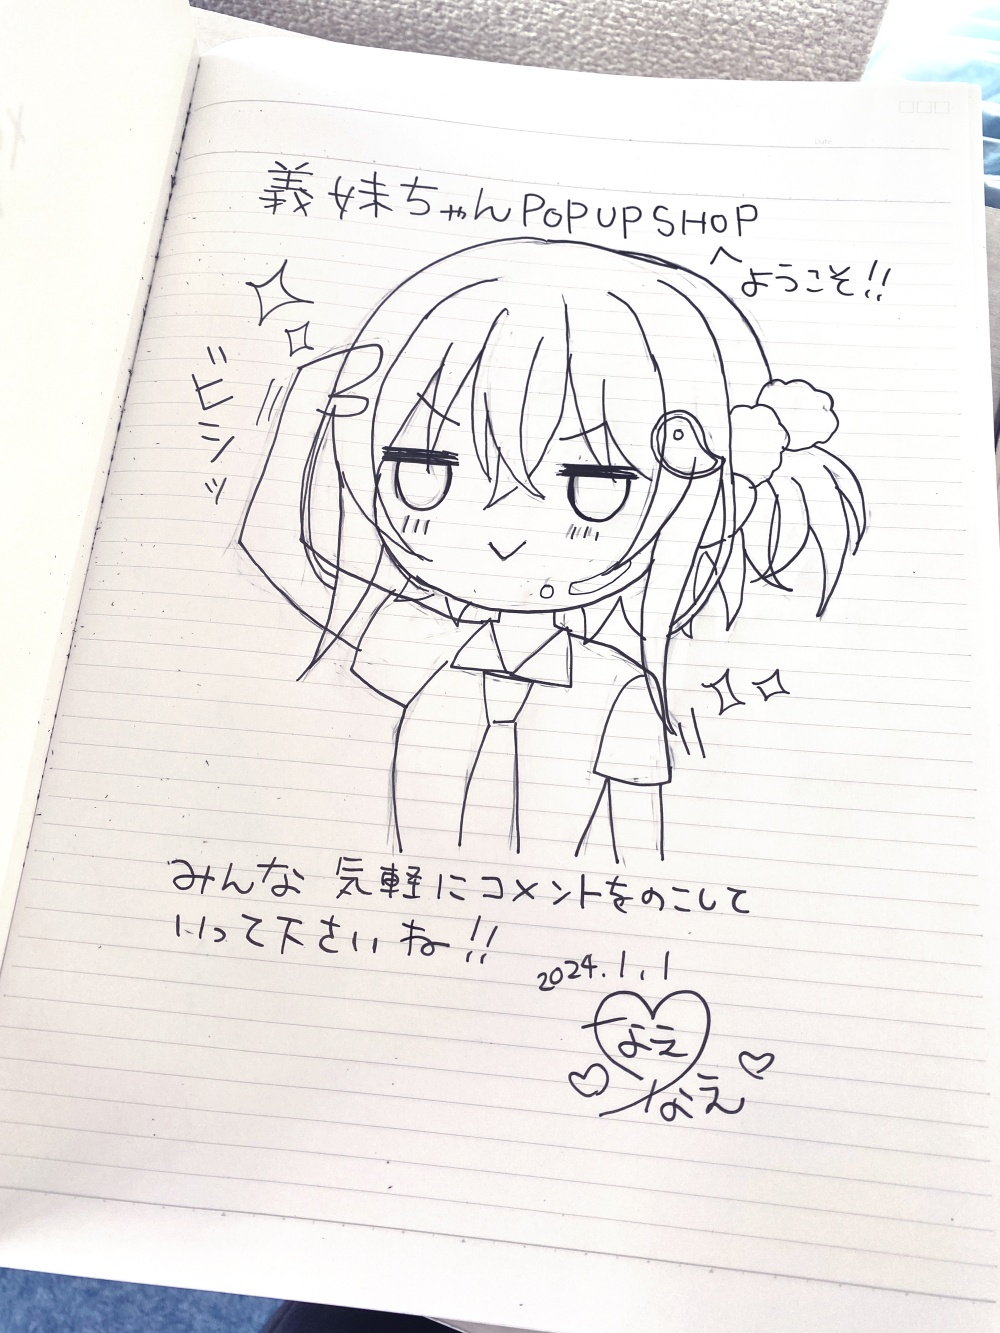 義妹ちゃんPOPUPSHOP
へようこそ!!
ビシッ
みんな気軽にコメントをのこして
いって下さいね!!
2024.1.1
なえ
なえ